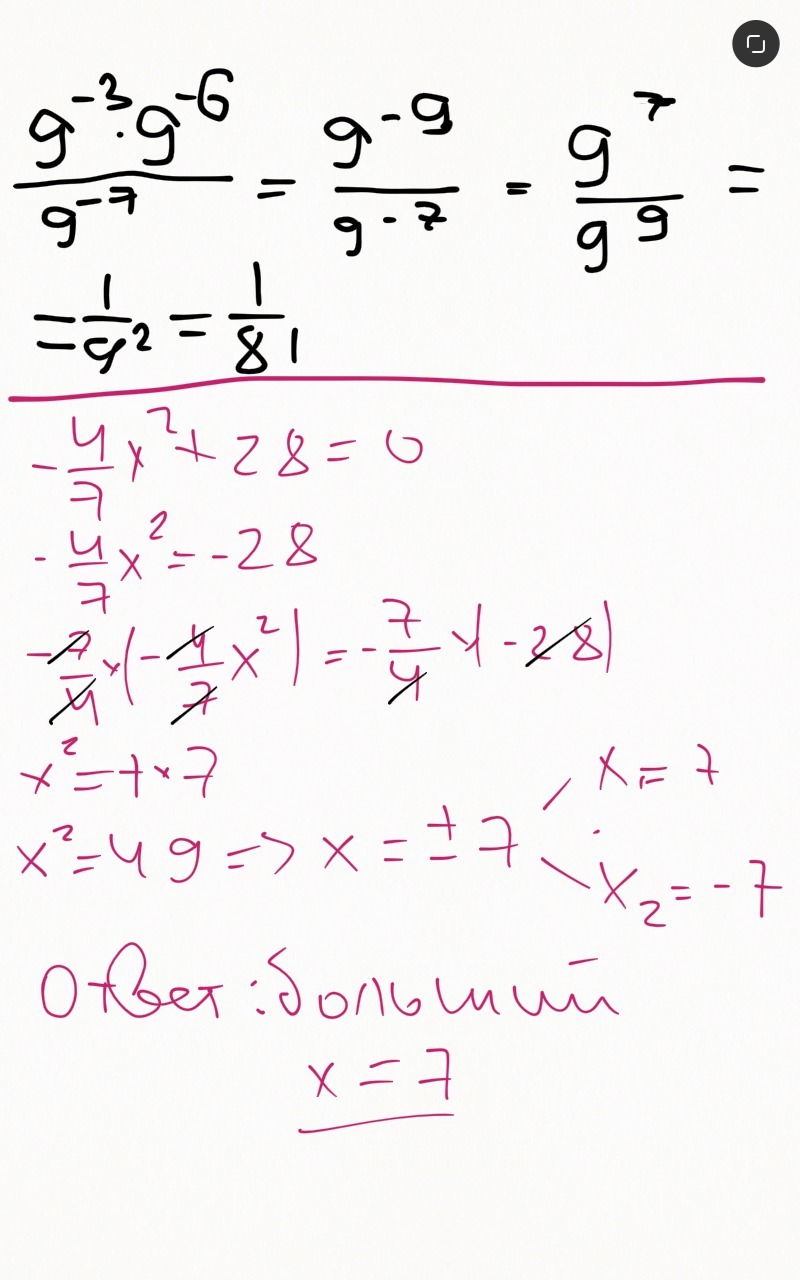 9⁻³·9⁻⁶/9⁻⁷ = 9⁻⁹/9⁻⁷ = 9⁷/9⁹ =
= 1/9² = 1/81
-4/7 x² + 28 = 0
-4/7 x² = -28
-7/4 × (-4/7 x²) = -7/4 × (-28)
x² = 7 × 7
x² = 49 => x = ±7 x₁ = 7
x₂ = -7
Ответ: больший
x = 7